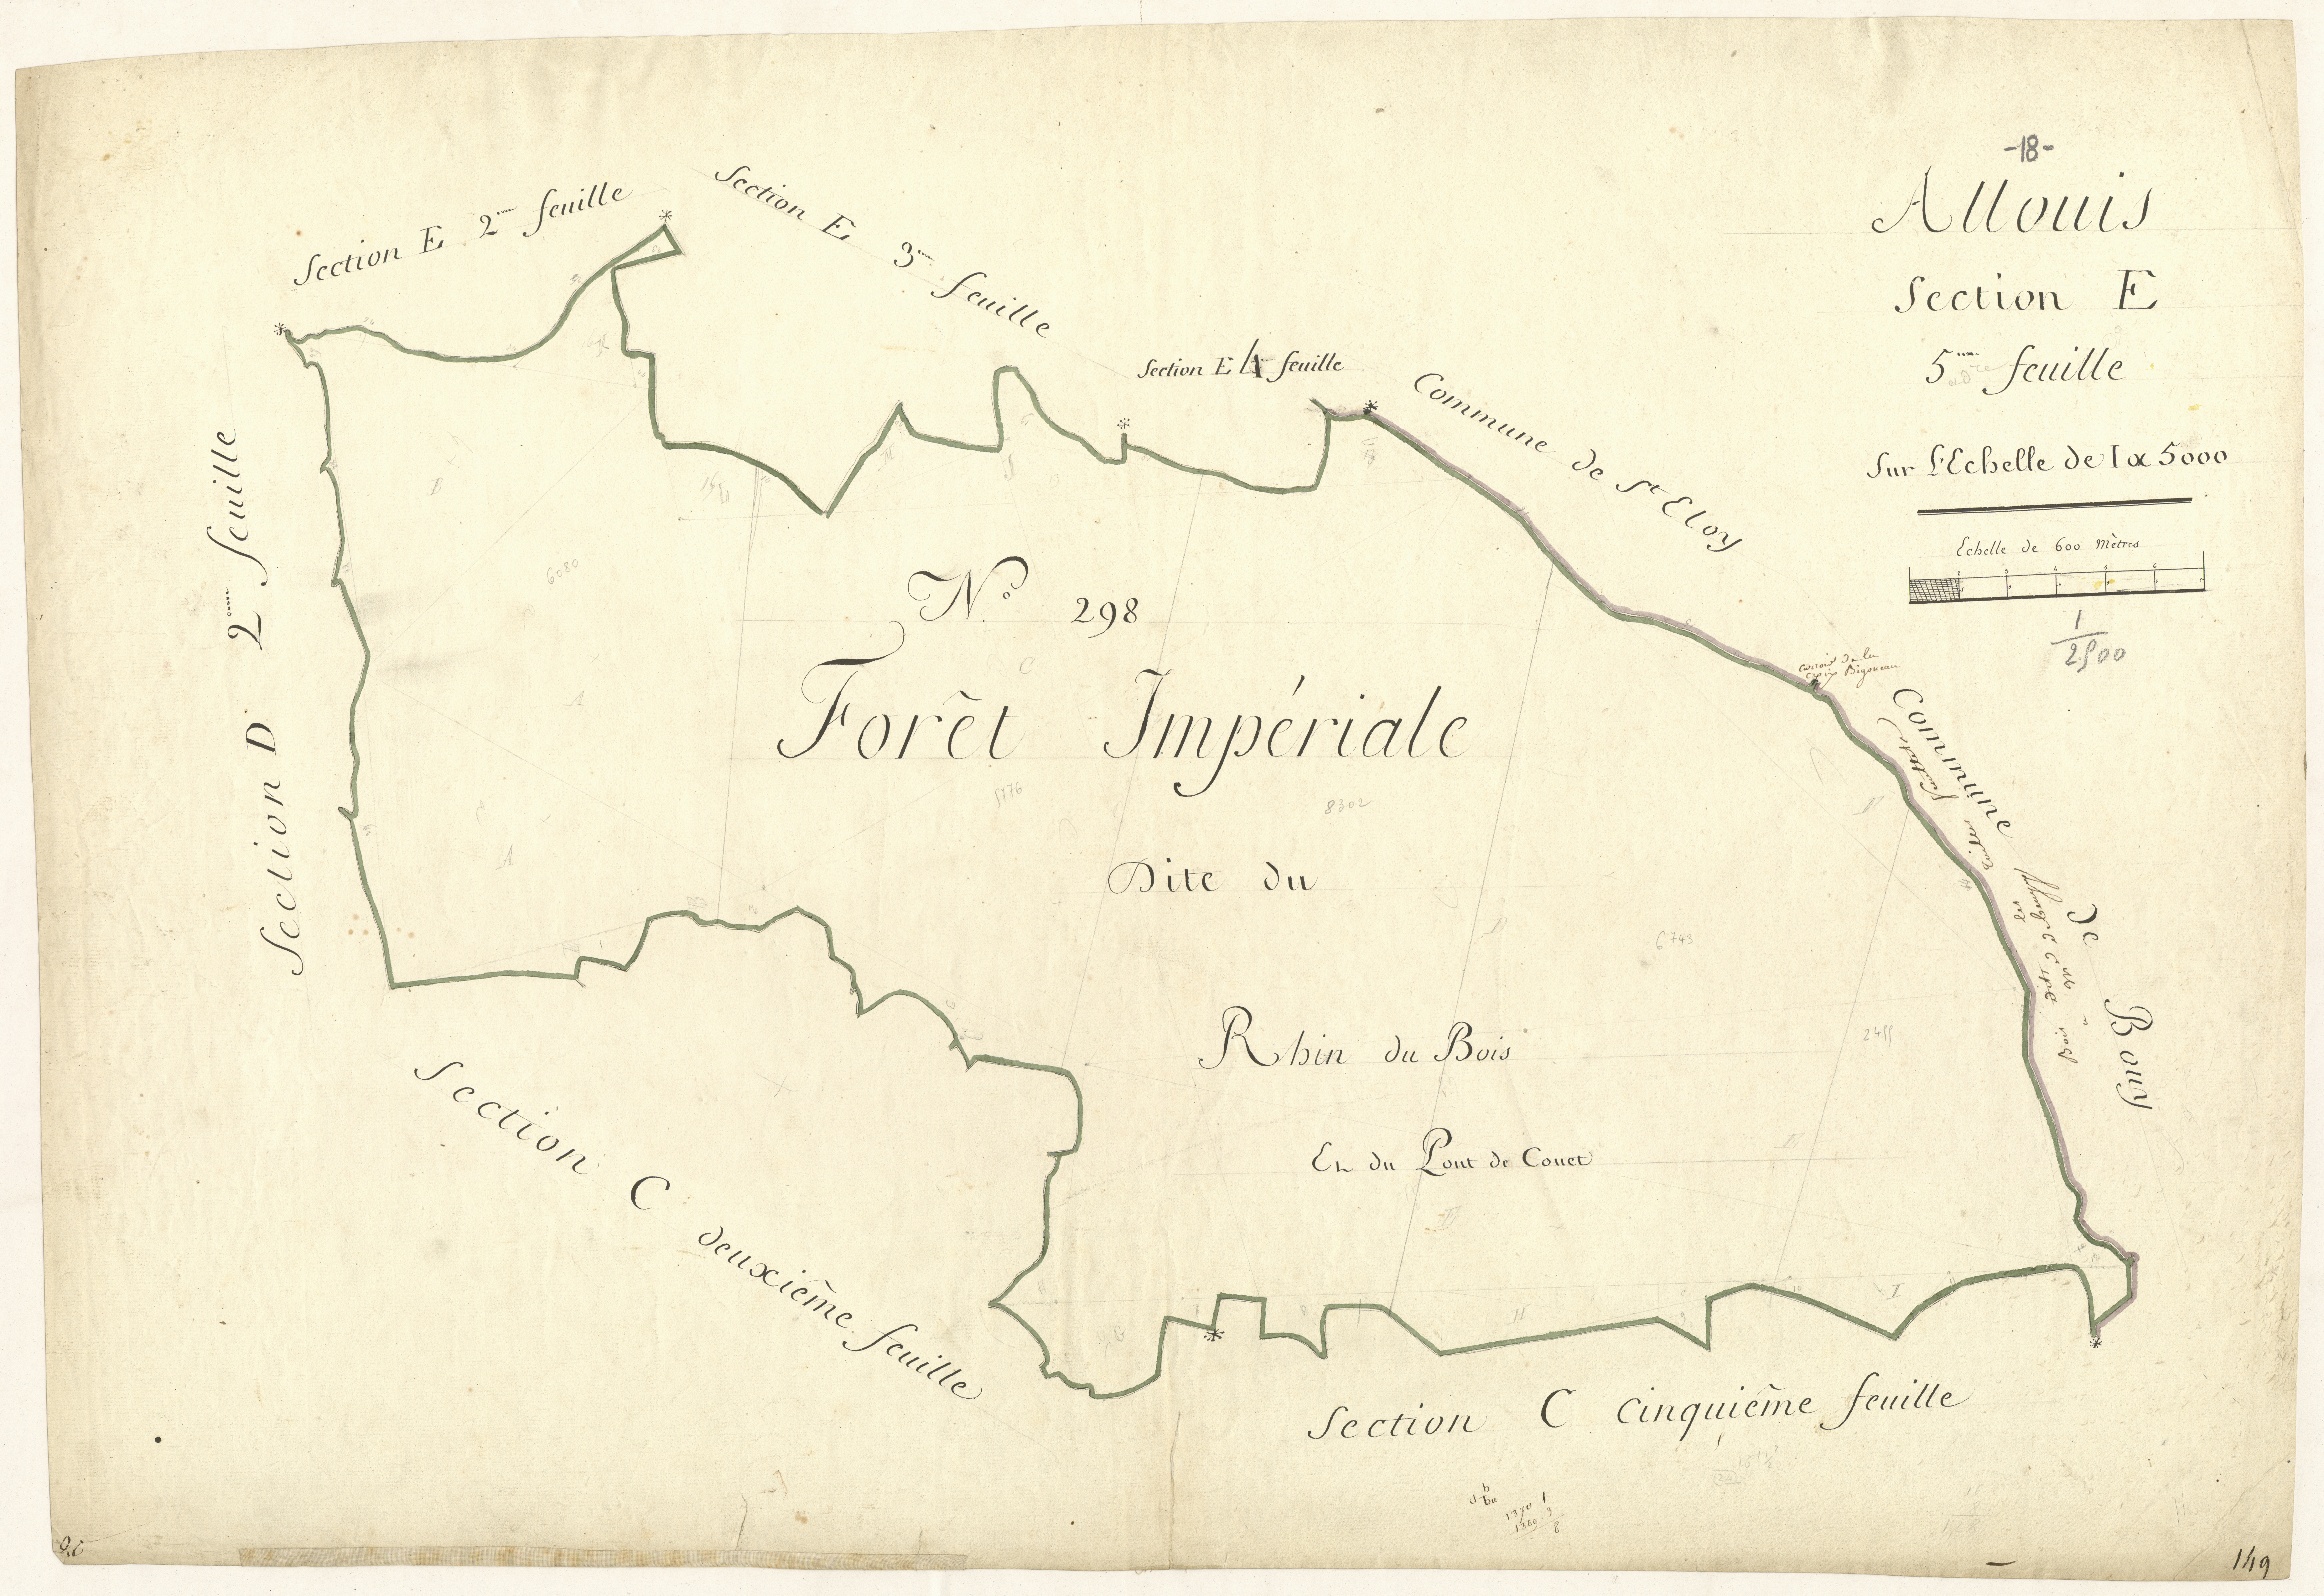 -18-
Allouis
Section E
5me feuille
Sur l'Echelle de 1 a 5000
Echelle de 600 Mètres
1
2500
Section E 2me feuille
Section E 3me feuille
Section E 4 feuille
Commune de St Eloy
Section D 2me feuille
No. 298
6080
Forêt Impériale
5176
8302
Dite du
6743
Rhin du Bois
2455
En du Pont de Couet
carroir de la
croix Bigneau
Commune de Bouy
Section C deuxième feuille
Section C cinquième feuille
1370
1360
149